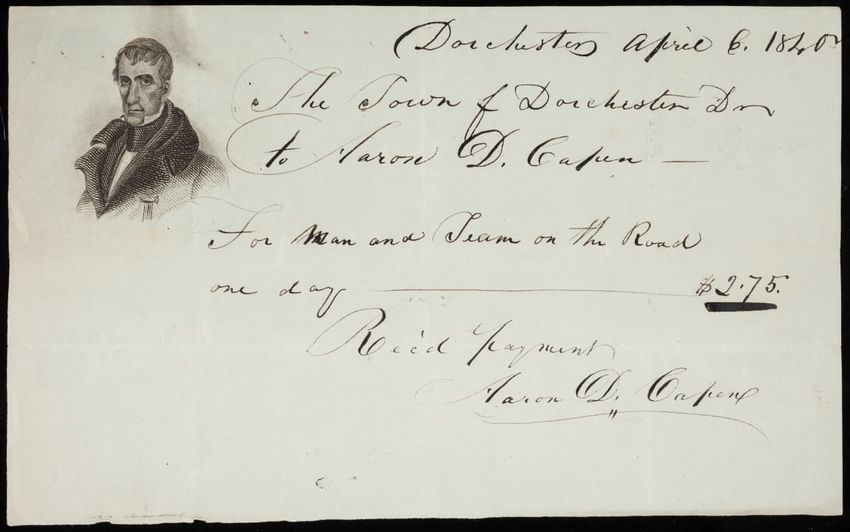 Dorchester April 6. 1840
The Town of Dorchester Dr
to Aaron D. Capen —
For Man and Team on the Road
one day — $2.75.
Rec'd payment
Aaron D. Capen